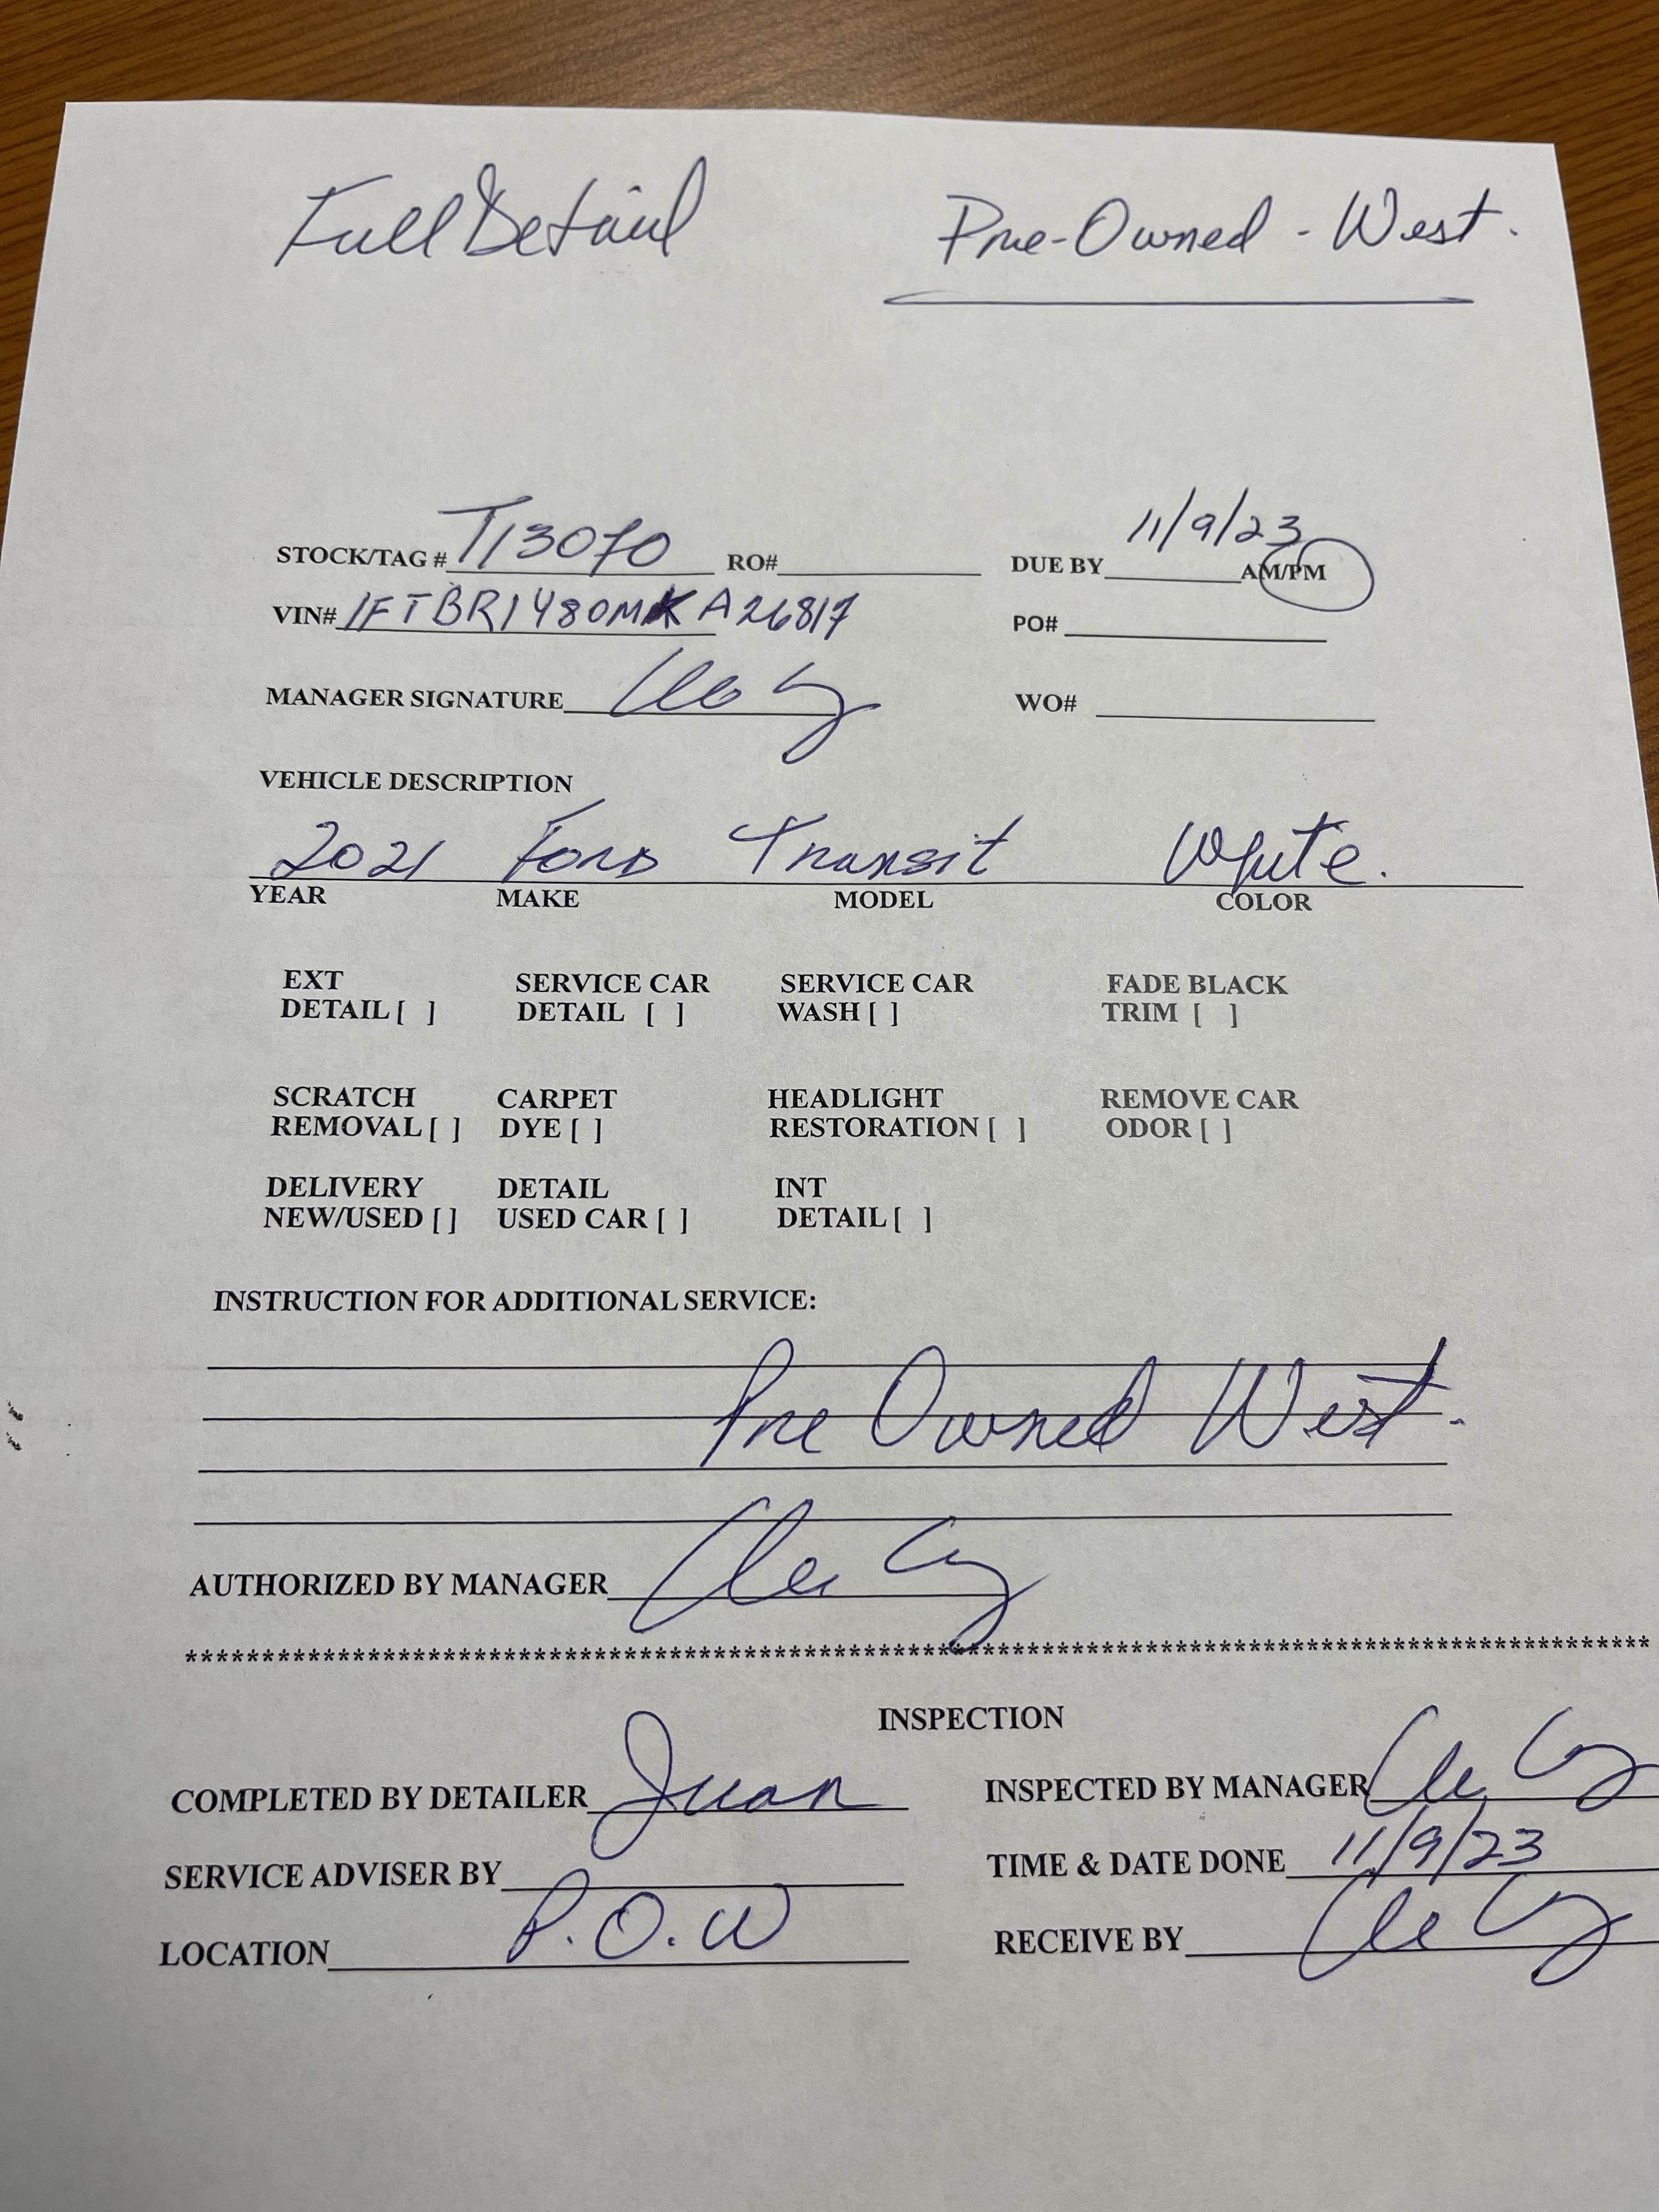 Full Detail Pre-Owned - West.
STOCK/TAG # T13070 RO# DUE BY 11/9/23 AM/PM
VIN# 1FTBR1Y80MKA26817 PO#
MANAGER SIGNATURE WO#
VEHICLE DESCRIPTION
2021 Ford Transit White.
YEAR MAKE MODEL COLOR
EXT SERVICE CAR SERVICE CAR FADE BLACK
DETAIL [ ] DETAIL [ ] WASH [ ] TRIM [ ]
SCRATCH CARPET HEADLIGHT REMOVE CAR
REMOVAL [ ] DYE [ ] RESTORATION [ ] ODOR [ ]
DELIVERY DETAIL INT
NEW/USED [ ] USED CAR [ ] DETAIL [ ]
INSTRUCTION FOR ADDITIONAL SERVICE:
Pre Owned West.
AUTHORIZED BY MANAGER
INSPECTION
COMPLETED BY DETAILER Juan INSPECTED BY MANAGER
SERVICE ADVISER BY TIME & DATE DONE 11/9/23
LOCATION P.O.W RECEIVE BY